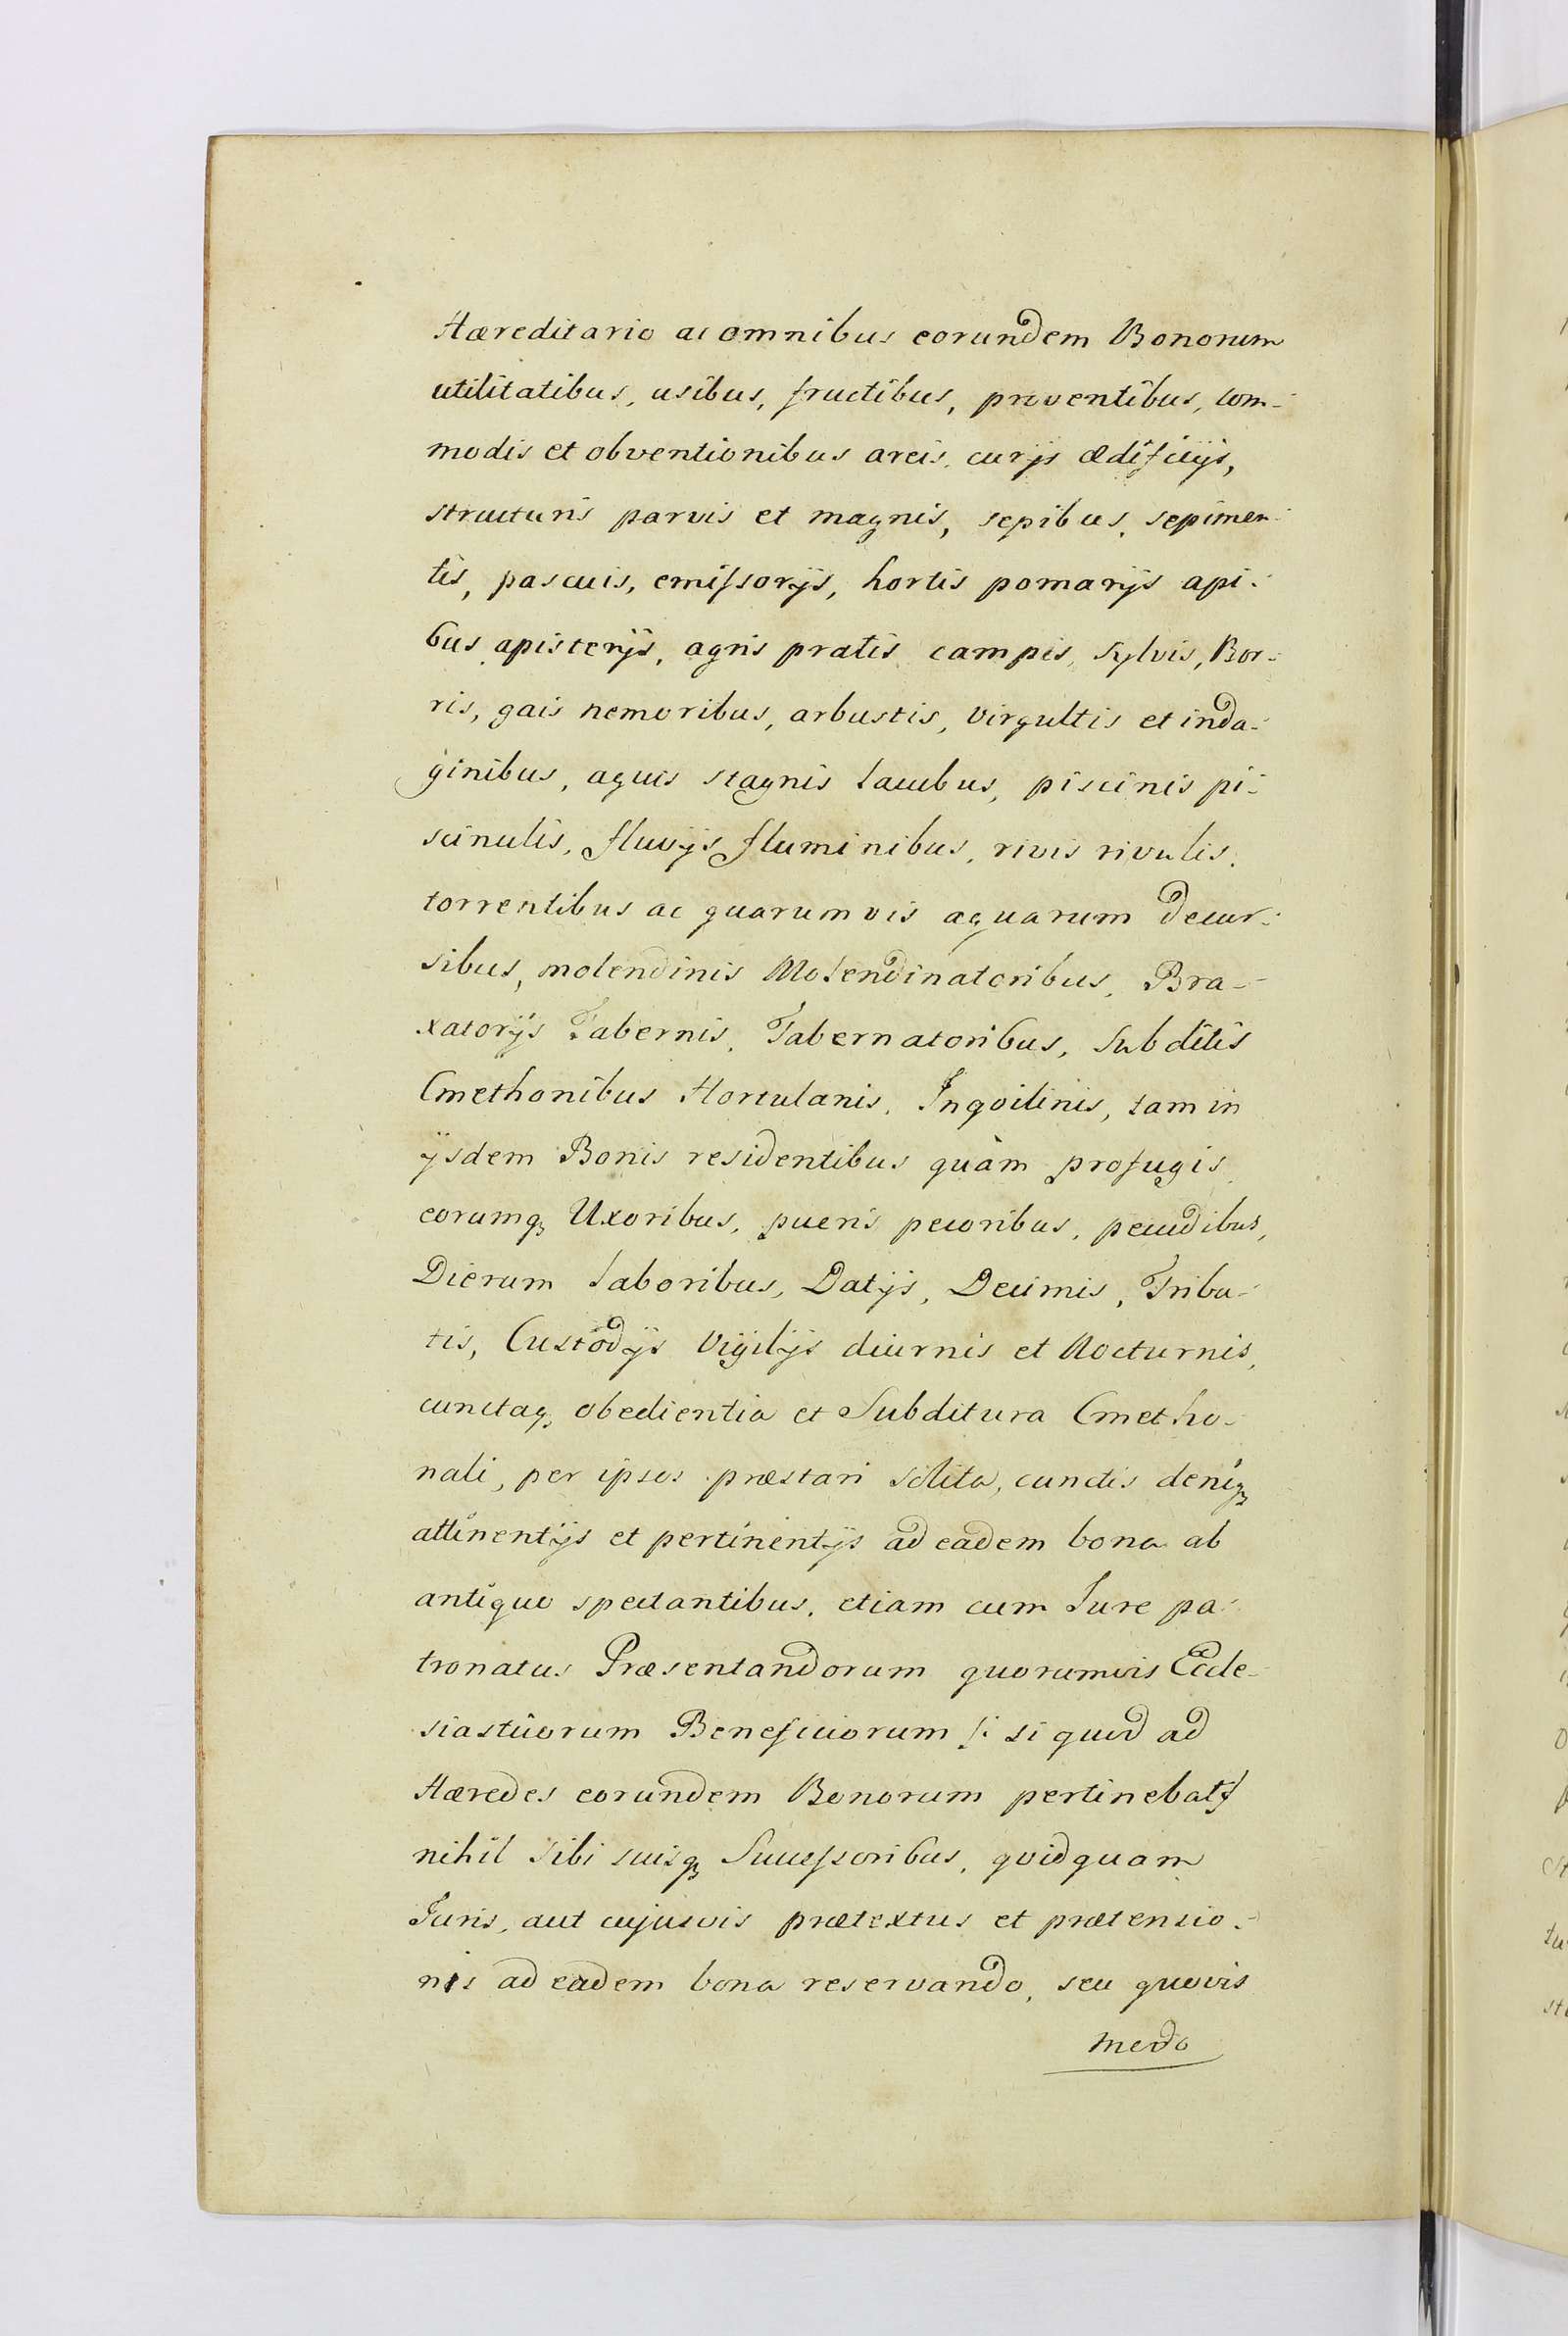 Hæreditario ac omnibus eorundem Bonorum
utilitatibus, usibus, fructibus, proventibus, com-
modis et obventionibus areis, curijs ædificijs,
structuris parvis et magnis, sepibus, sepimen-
tis, pascuis, emissorijs, hortis pomarijs api-
bus apisterijs, agris pratis campis, sylvis, Bor-
ris, gais nemoribus, arbustis, virgultis et inda-
ginibus, aquis stagnis lacubus, piscinis pi-
scinulis, fluvijs fluminibus, rivis rivulis,
torrentibus ac quarumvis aquarum decur-
sibus, molendinis Molendinatoribus, Bra-
xatorijs Tabernis, Tabernatoribus, Subditis
Cmethonibus Hortulanis, Inqvilinis, tam in
ijsdem Bonis residentibus quàm profugis,
eorumq Uxoribus, pueris pecoribus, pecudibus,
Dierum laboribus, Datijs, Decimis, Tribu-
tis, Custodijs Vigilijs diurnis et Nocturnis,
cunctaq obedientia et Subditura Cmetho-
nali, per ipsos præstari solita, cunctis deniq
attinentijs et pertinentijs ad eadem bona ab
antiquo spectantibus, etiam cum Jure pa-
tronatus Præsentandorum quorumvis Eccle-
siasticorum Beneficiorum /: si quid ad
Hæredes eorundem Bonorum pertinebat :/
nihil sibi suisq Successoribus, qvidquam
Juris, aut cujusvis prætextus et prætensio-
nis ad eadem bona reservando, seu quovis
modo